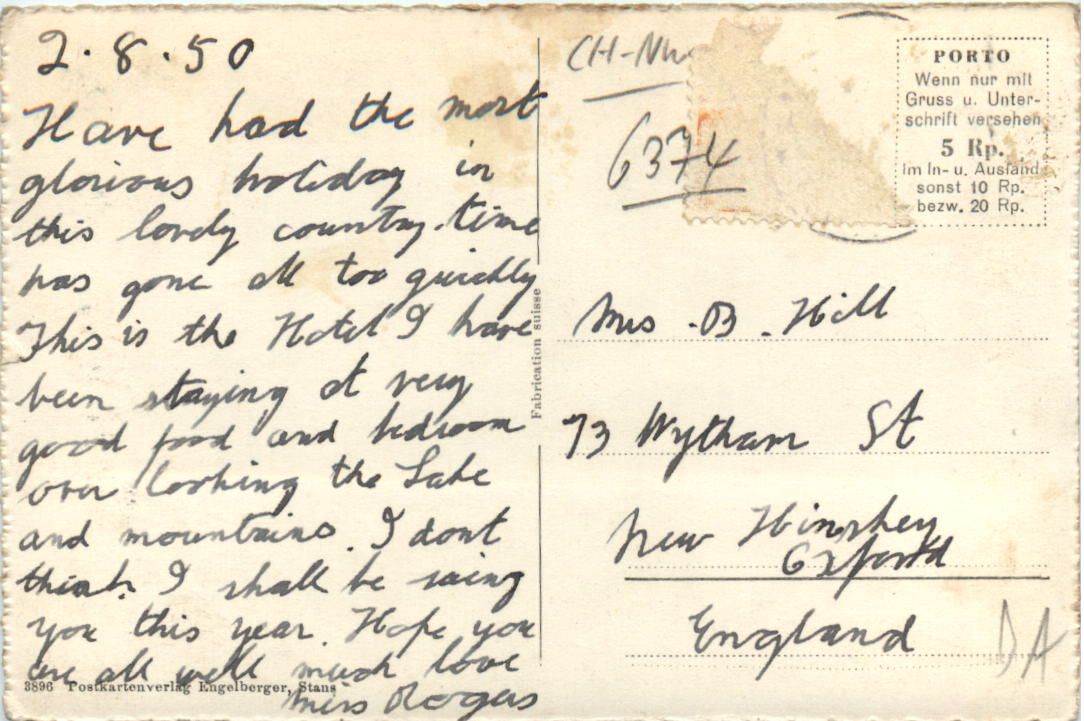 2.8.50
Have had the most
glorious holiday in
this lovely country. time
has gone all too quickly
This is the Hotel I have
been staying at very
good food and bedroom
over looking the Lake
and mountains. I dont
think I shall be seing
you this year. Hope you
are all well much love
Miss Rogers
3896 Postkartenverlag Engelberger, Stans
Fabrication suisse
CH-NW
6374
PORTO
Wenn nur mit
Gruss u. Unter-
schrift versehen
5 Rp.
Im In- u. Ausland
sonst 10 Rp.
bezw. 20 Rp.
Mrs . B . Hill
73 Wytham St
New Hinskey
Oxford
England
DA